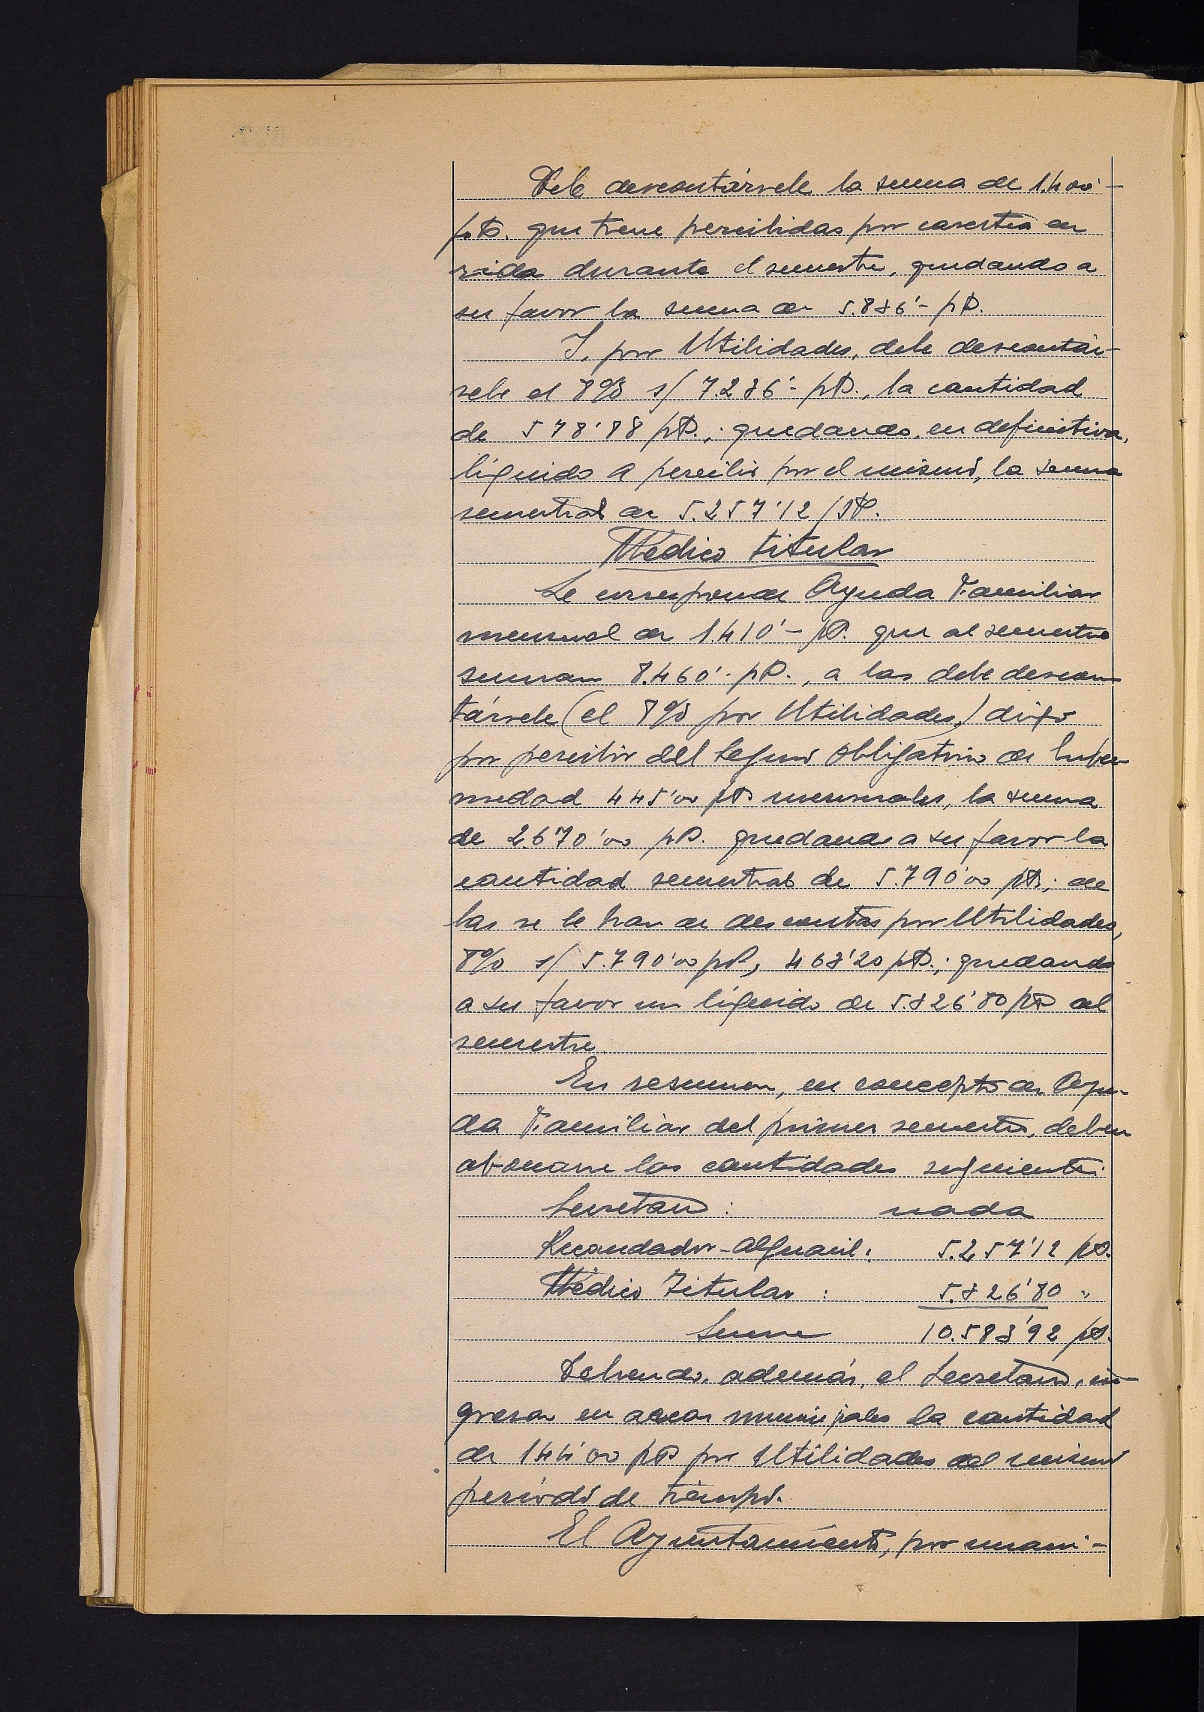 Debe descontársele la suma de 1.400'-
pts. que tiene percibidas por carestía en
vida durante el semestre, quedando a
su favor la suma de 5.836'- pts.
Y, por Utilidades, debe descontár-
sele el 8% s/ 7.236'- pts., la cantidad
de 578'88 pts.; quedando, en definitiva,
líquido a percibir por el mismo, la suma
semestral de 5.257'12 pts.
Médico titular
Le corresponde Ayuda Familiar
mensual de 1.410'- pts. que al semestre
suman 8.460'- pts., a las debe descon-
társele (el 8% por Utilidades,) digo
por percibir del Seguro Obligatorio de Enfer-
medad 445'00 pts mensuales, la suma
de 2.670'00 pts. quedando a su favor la
cantidad semestral de 5.790'00 pts; de
las se le han de descontar por Utilidades,
8% s/ 5.790'00 pts, 463'20 pts.; quedando
a su favor un líquido de 5.326'80 pts al
semestre.
En resumen, en concepto de Ayu-
da Familiar del primer semestre, deben
abonarse las cantidades siguientes:
Secretario: nada
Recaudador-Alguacil: 5.257'12 pts.
Médico Titular: 5.326'80 "
Suma 10.583'92 pts.
Debiendo, además, el Secretario, in-
gresar en arcas municipales la cantidad
de 144'00 pts por Utilidades del mismo
período de tiempo.
El Ayuntamiento, por unani-